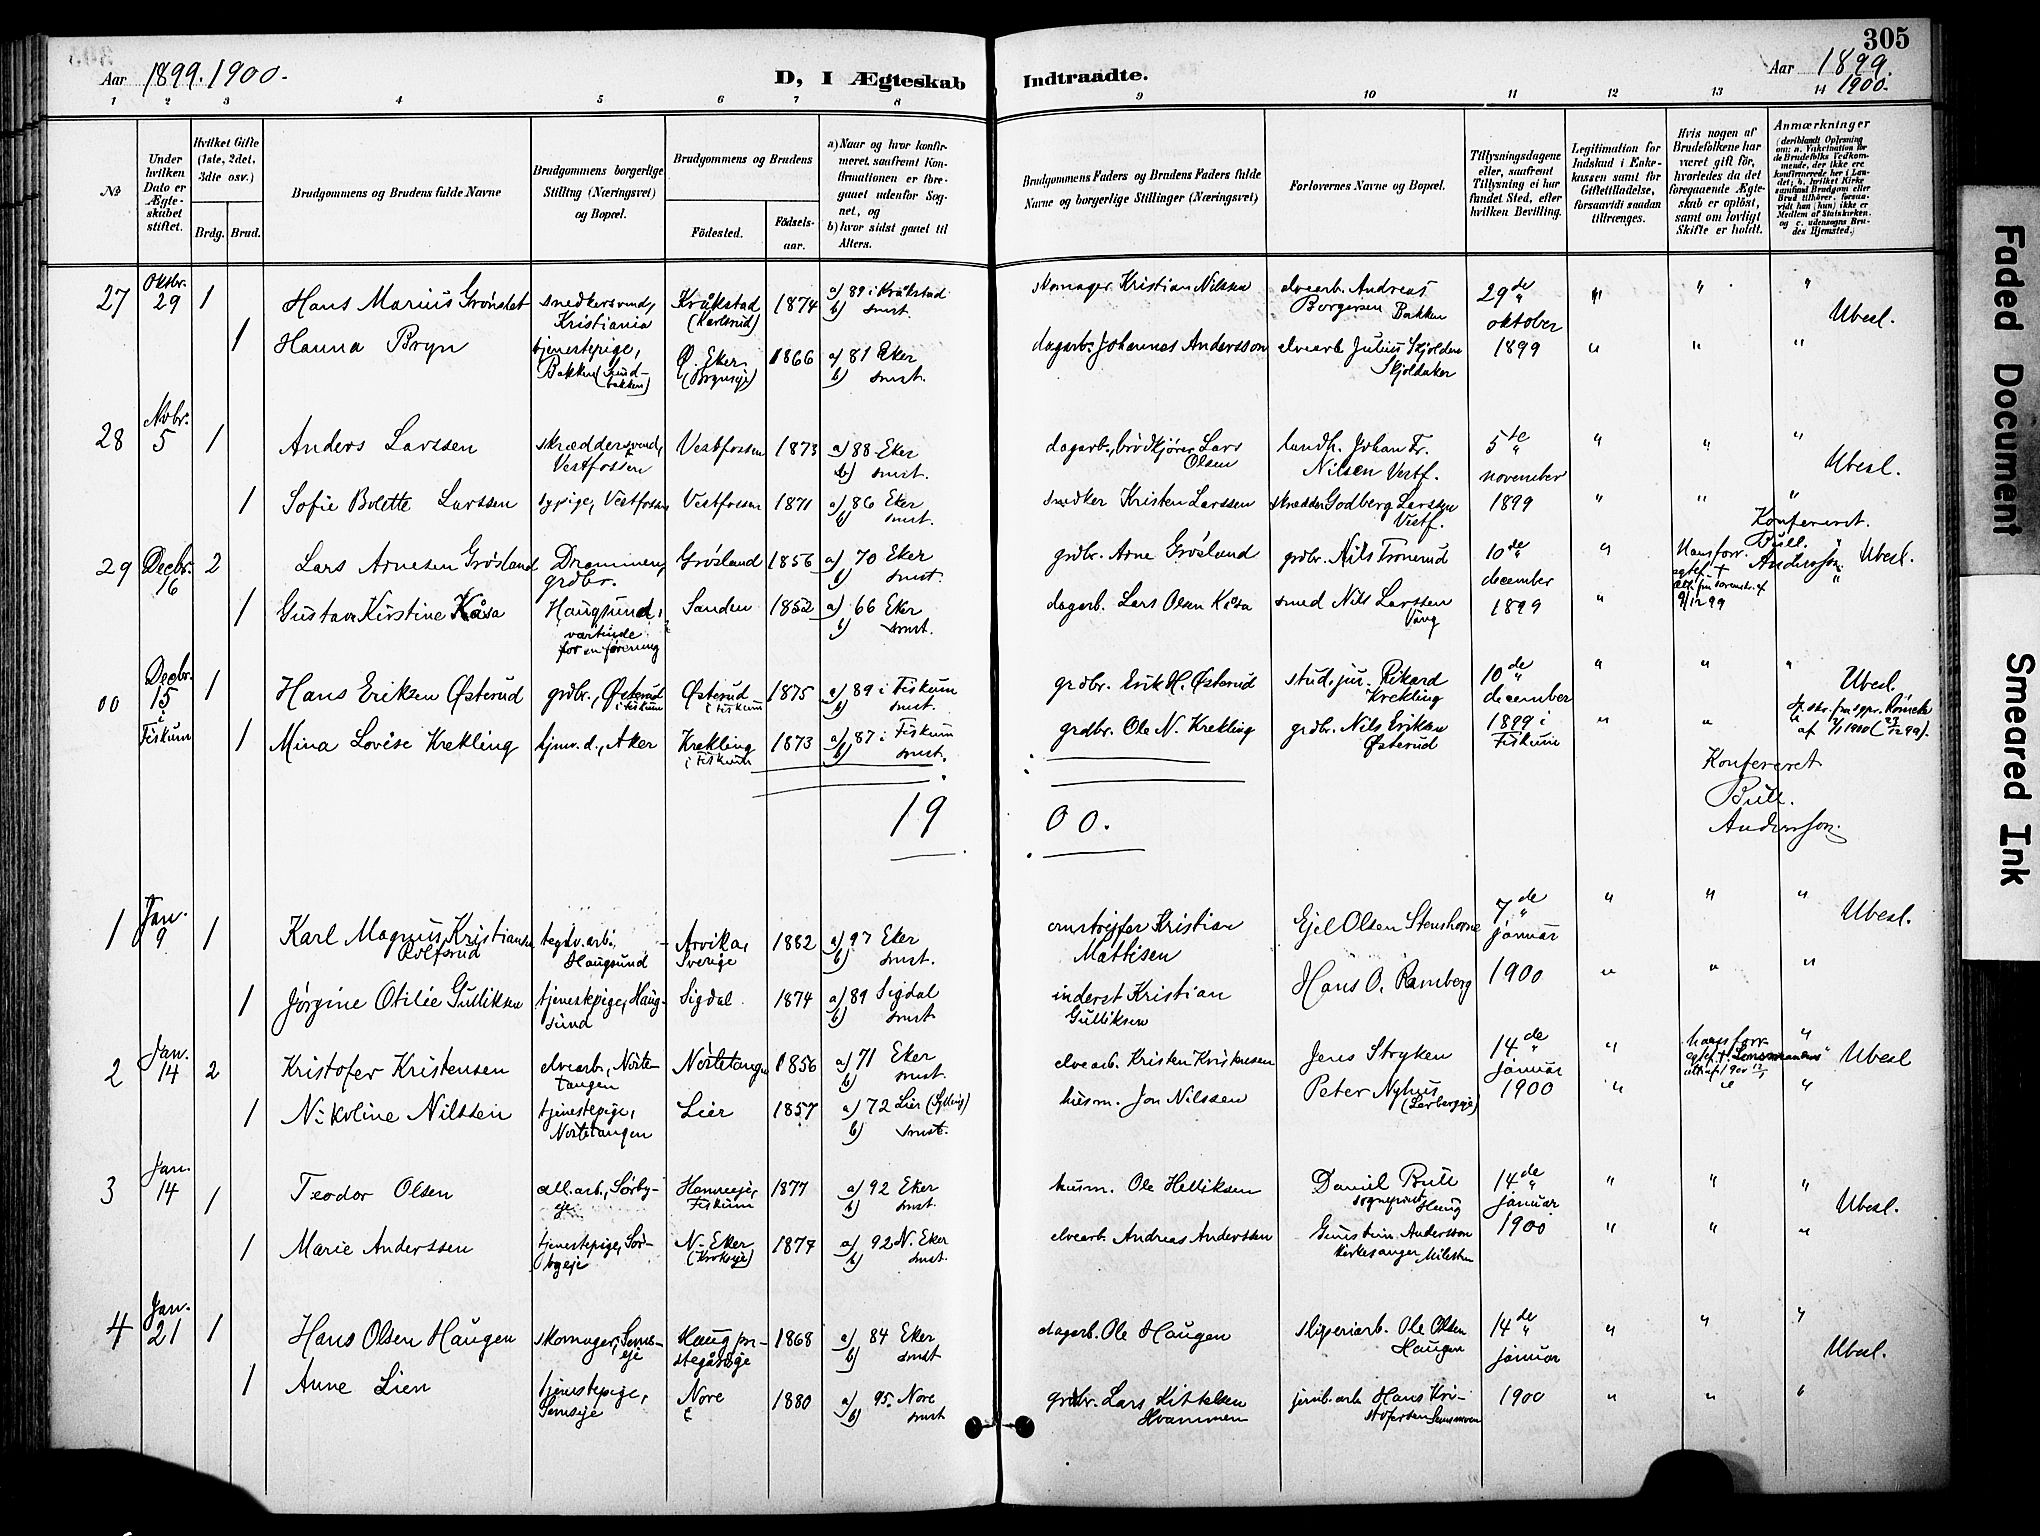 305
Aar 1899. 1900.
D, I Ægteskab Indtraadte.
Aar 1899.
1900.
1 2 3 4 5 6 7 8 9 10 11 12 13 14
No
Under hvilken Dato er Ægteskabet stiftet.
Hvilket Gifte (1ste, 2det, 3die osv.)
Brdg. Brud.
Brudgommens og Brudens fulde Navne
Brudgommens borgerlige Stilling (Næringsvei) og Bopæl.
Brudgommens og Brudens
Födested.
Födselsaar.
a) Naar og hvor konfirmeret, saafremt Konfirmationen er foregaaet udenfor Sognet, og
b) hvor sidst gaaet til Alters.
Brudgommens Faders og Brudens Faders fulde Navne og borgerlige Stillinger (Næringsvei)
Forlovernes Navne og Bopæl.
Tillysningsdagene eller, saafremt Tillysning ei har fundet Sted, efter hvilken Bevilling.
Legitimation for Indskud i Enkekassen samt for Giftetilladelse, forsaavidt saadan tiltrænges.
Hvis nogen af Brudefolkene har været gift för, hvorledes da det foregaaende Ægteskab er oplöst, samt om lovligt Skifte er holdt.
Anmærkninger
27 Oktbr. 29 1 Hans Marius Grønslet snedkersvend, Kristiania Kråkstad (Karlsrud) 1874 a) 89 i Kråkstad b) smst. skomager Kristian Nilssen elvearb. Andreas Borgersen Bakken 29de oktober " " " Ubesl.
1 Hanna Bryn tjenestepige, Bakken Ø. Eker (Brynseje) 1866 a) 81 Eker b) smst. dagarb. Johannes Andersson elvearb Julius Skjolden Skjoldaker 1899 " " "
28 Novbr. 5 1 Anders Larssen skræddersvend, Vestfossen Vestfossen 1873 a) 88 Eker b) smst. dagarb., brödkjører Lars Olsen landh. Johan Fr. Nilsen Vestf. 5te november " " " Ubesl.
1 Sofie Bolette Larssen sypige, Vestfossen Vestfossen 1871 a) 86 Eker b) smst. snedker Kristen Larssen skrædder Godberg Larssen Vestf. 1899 " " "
Konfereret.
Bull.
Andersson.
29 Decbr. 16 2 Lars Arnesen Grøsland Drammen, grdbr. Grøsland 1856 a) 70 Eker b) smst. grdbr. Arne Grøsland grdbr. Nils Tronerud 10de december " Hans forr. egtef. † 9/12 99 Ubesl.
1 Gustava Kirstine Kåsa Haugsund, værtinde for en forening Sanden 1852 a) 66 Eker b) smst. dagarb. Lars Olsen Kåsa smed Nils Larssen Vång 1899 "
00 Decbr. 15 i Fiskum 1 Hans Eriksen Østerud grdbr., Østerud i Fiskum Østerud i Fiskum 1875 a) 89 i Fiskum b) smst. grdbr. Erik H. Østerud stud. jur. Rikard Krekling 10de december " " " Ubesl.
1 Mina Lovise Krekling hjmv. d., Aker Krekling i Fiskum 1873 a) 87 i Fiskum b) smst. grdbr. Ole N. Krekling grdbr. Nils Eriksen Østerud 1899 i Fiskum " "
Konfereret
Bull.
Andersson.
1900.
1 Jan. 9 1 Karl Magnus Kristiansen Rolfsrud teglv. arb., Haugsund Arvika, Sverige 1862 a) 97 Eker b) smst. Kristian Mattisen Ejel Olsen Stenshorne 7de januar " " " Ubesl.
1 Jørgine Otilie Gulliksen tjenestepige, Haugsund Sigdal 1874 a) 89 Sigdal b) smst inderst Kristian Gulliksen Hans O. Ramberg 1900 " " "
2 Jan. 14 2 Kristofer Kristensen elvearb., Nortetangen Nortetangen 1856 a) 71 Eker b) smst. elvearb. Kristen Kristensen Jens Stryken 14de januar " hans forr. egtef. † " Ubesl
1 Nikoline Nilssen tjenestepige, Nortetangen Lier 1857 a) 72 Lier (Sylling) b) smst. husm. Jon Nilssen Peter Nyhus 1900 " "
3 Jan. 14 1 Teodor Olsen all. arb., Sørbyeje Hamreeje, Fiskum 1877 a) 92 Eker b) smst. husm. Ole Helliksen Daniel Bull sogneprest Haug 14de januar " " " Ubesl.
1 Marie Anderssen tjenestepige, Sørbyeje N. Eker (Krokseje) 1877 a) 92 N. Eker b) smst. elvearb. Andreas Anderssen Andersson kirkesanger 1900 " " "
4 Jan. 21 1 Hans Olsen Haugen skomager, Semseje Haug prestegårdsge 1868 a) 84 Eker b) smst dagarb. Ole Haugen sliperiarb. Ole Olsen Haugen 14de januar " " " Ubesl.
1 Anne Lien tjenestepige, Semseje Nore 1880 a) 95. Nore b) smst grdbr. Lars Kittelsen Hvammen jernb. arb Hans Kristofersen Semsmoen 1900 " "
Faded Document
Smeared Ink